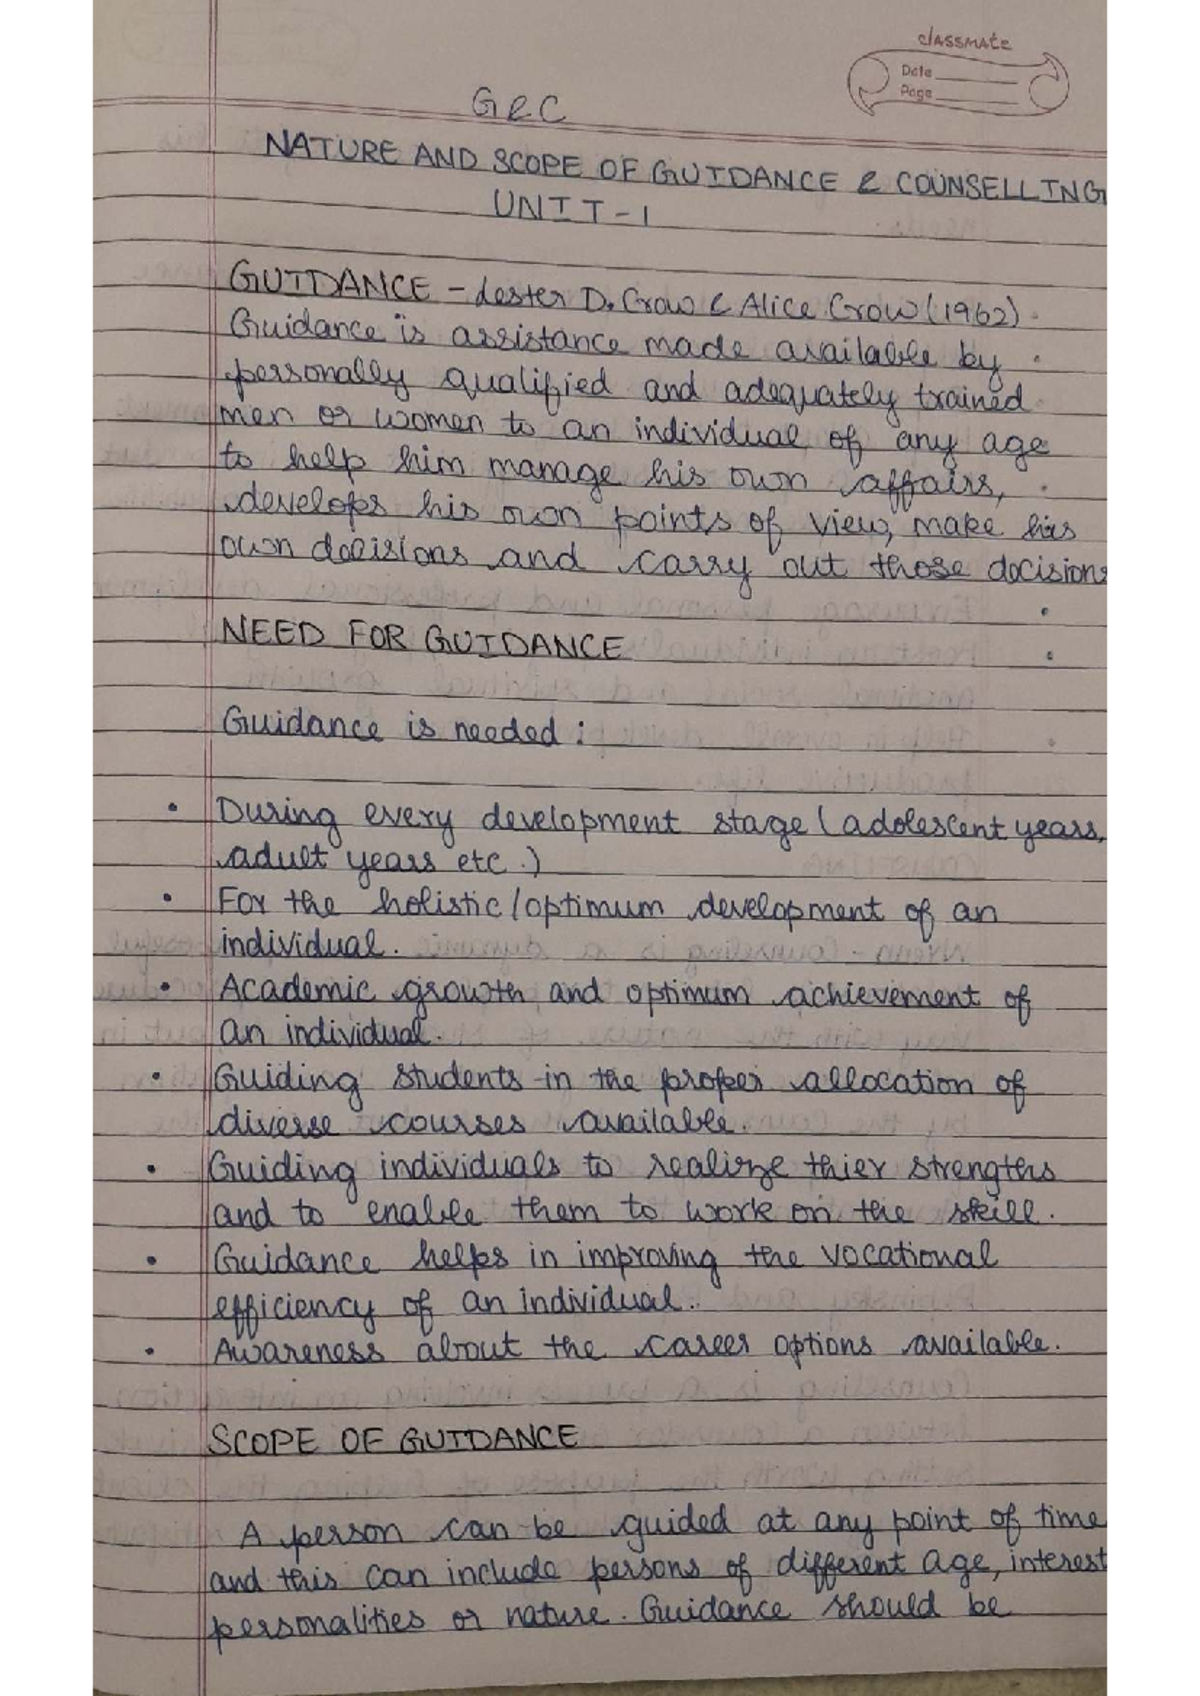 classmate
Date
Page
G & C
NATURE AND SCOPE OF GUIDANCE & COUNSELLING
UNIT-1
GUIDANCE - Lester D. Crow & Alice Crow (1962)
Guidance is assistance made available by
personally qualified and adequately trained
men or women to an individual of any age
to help him manage his own affairs,
develops his own points of view, make his
own decisions and carry out those decisions
NEED FOR GUIDANCE
Guidance is needed :
• During every development stage (adolescent years,
adult years etc.)
• For the holistic/optimum development of an
individual.
• Academic growth and optimum achievement of
an individual.
• Guiding students in the proper allocation of
diverse courses available.
• Guiding individuals to realize thier strengths
and to enable them to work on the skill.
• Guidance helps in improving the vocational
efficiency of an individual.
• Awareness about the career options available.
SCOPE OF GUIDANCE
A person can be guided at any point of time
and this can include persons of different age, interest
personalities or nature. Guidance should be